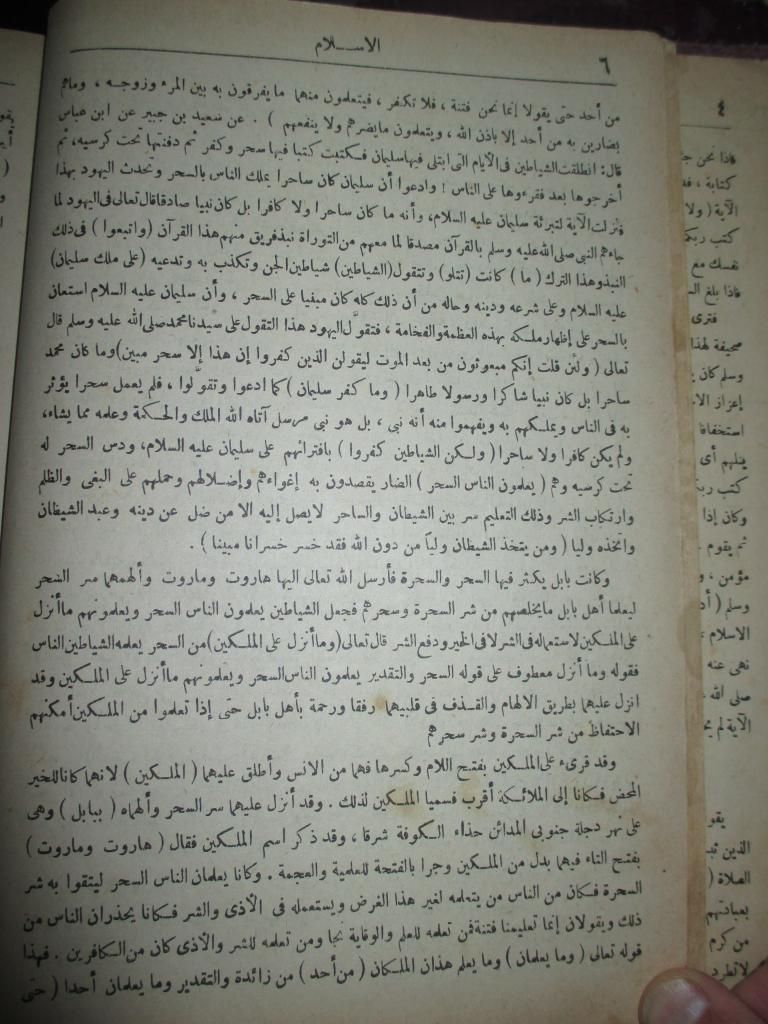 الاسلام
٦
من أحد حتى يقولا إنما نحن فتنة ، فلا تكفر ، فيتعلمون منهما ما يفرقون به بين المرء وزوجه ، وماهم
بضارين به من أحد إلا باذن الله ، ويتعلمون مايضرهم ولا ينفعهم ) . عن سعيد بن جبير عن ابن عباس
قال : انطلقت الشياطين فى الأيام التى ابتلى فيها سليمان فكتبت كتبا فيها سحر وكفر ثم دفنتها تحت كرسيه، ثم
أخرجوها بعد فقرءوها على الناس ! وادعوا أن سليمان كان ساحرا يملك الناس بالسحر وتحدث اليهود بهذا
فنزلت الآية لتبرئة سليمان عليه السلام، وأنه ما كان ساحرا ولا كافرا بل كان نبيا صادقا قال تعالى فى اليهود لما
جاءهم النبى صلى الله عليه وسلم بالقرآن مصدقا لما معهم من التوراة نبذ فريق منهم هذا القرآن (واتبعوا ) فى ذلك
النبذ وهذا الترك ( ما ) كانت (تتلو) وتتقول (الشياطين) شياطين الجن وتكذب به وتدعيه (على ملك سليمان)
عليه السلام وعلى شرعه ودينه وحاله من أن ذلك كله كان مبنيا على السحر ، وأن سليمان عليه السلام استعان
بالسحر على إظهار ملكه بهذه العظمة والفخامة ، فتقوّل اليهود هذا التقول على سيدنا محمد صلى الله عليه وسلم قال
تعالى ( ولئن قلت إنكم مبعوثون من بعد الموت ليقولن الذين كفروا إن هذا إلا سحر مبين ) وما كان محمد
ساحرا بل كان نبيا شاكرا ورسولا طاهرا ( وما كفر سليمان ) كما ادعوا وتقوّلوا ، فلم يعمل سحرا يؤثر
به فى الناس ويملكهم به ويفهموا منه أنه نبى ، بل هو نبى مرسل آتاه الله الملك والحكمة وعلمه مما يشاء،
ولم يكن كافرا ولا ساحرا ( ولكن الشياطين كفروا ) بافترائهم على سليمان عليه السلام، ودس السحر له
تحت كرسيه وهم ( يعلمون الناس السحر ) الضار يقصدون به إغواءهم وإضلالهم وحملهم على البغى والظلم
وارتكاب الشر وذلك التعليم سر بين الشيطان والساحر لايصل إليه الا من ضل عن دينه وعبد الشيطان
واتخذه وليا ( ومن يتخذ الشيطان وليا من دون الله فقد خسر خسرانا مبينا ) .
وكانت بابل يكثر فيها السحر والسحرة فأرسل الله تعالى اليها هاروت وماروت وألهمهما سر السحر
ليعلما أهل بابل مايخلصهم من شر السحرة وسحرهم فجعل الشياطين يعلمون الناس السحر ويعلمونهم ماأنزل
على الملكين لاستعماله فى الشر لا فى الخير ودفع الشر قال تعالى (وماأنزل على الملكين) من السحر يعلمه الشياطين الناس
فقوله وما أنزل معطوف على قوله السحر والتقدير يعلمون الناس السحر ويعلمونهم ماأنزل على الملكين وقد
انزل عليهما بطريق الالهام والقذف فى قلبيهما رفقا ورحمة بأهل بابل حتى إذا تعلموا من الملكين أمكنهم
الاحتفاظ من شر السحرة وشر سحرهم
وقد قرىء على الملكين بفتح اللام وكسرها فهما من الانس وأطلق عليهما ( الملكين ) لانهما كانا للخير
المحض فكانا إلى الملائكة أقرب فسميا الملكين لذلك . وقد أنزل عليهما سر السحر وألهماه ( ببابل ) وهى
على نهر دجلة جنوبى المدائن حذاء الكوفة شرقا ، وقد ذكر اسم الملكين فقال ( هاروت وماروت )
بفتح التاء فيهما بدل من الملكين وجرا بالفتحة للعلمية والعجمة . وكانا يعلمان الناس السحر ليتقوا به شر
السحرة فكان من الناس من يتعلمه لغير هذا الغرض ويستعمله فى الأذى والشر فكانا يحذران الناس من
ذلك ويقولان إنما تعليمنا فتنة فمن تعلمه للعلم والوقاية نجا ومن تعلمه للشر والأذى كان من الكافرين . فهذا
قوله تعالى ( وما يعلمان ) وما يعلم هذان الملكان ( من أحد ) من زائدة والتقدير وما يعلمان أحدا ( حتى
٤
فاذا نحن
كتابة ،
الآية ( ولا
كتب ربكم
نفسك مع
فاذا بلغ
فترى
صحيفة لهذا
وسلم كان
إعزاز
استخفافا
أى
كتب
وكان إذا
ثم يقوم
مؤمن ،
وسلم (
الاسلام
نهى عنه
صلى الله
الآية لم
الذين
الصلاة (
بعبادتهم
من كرم